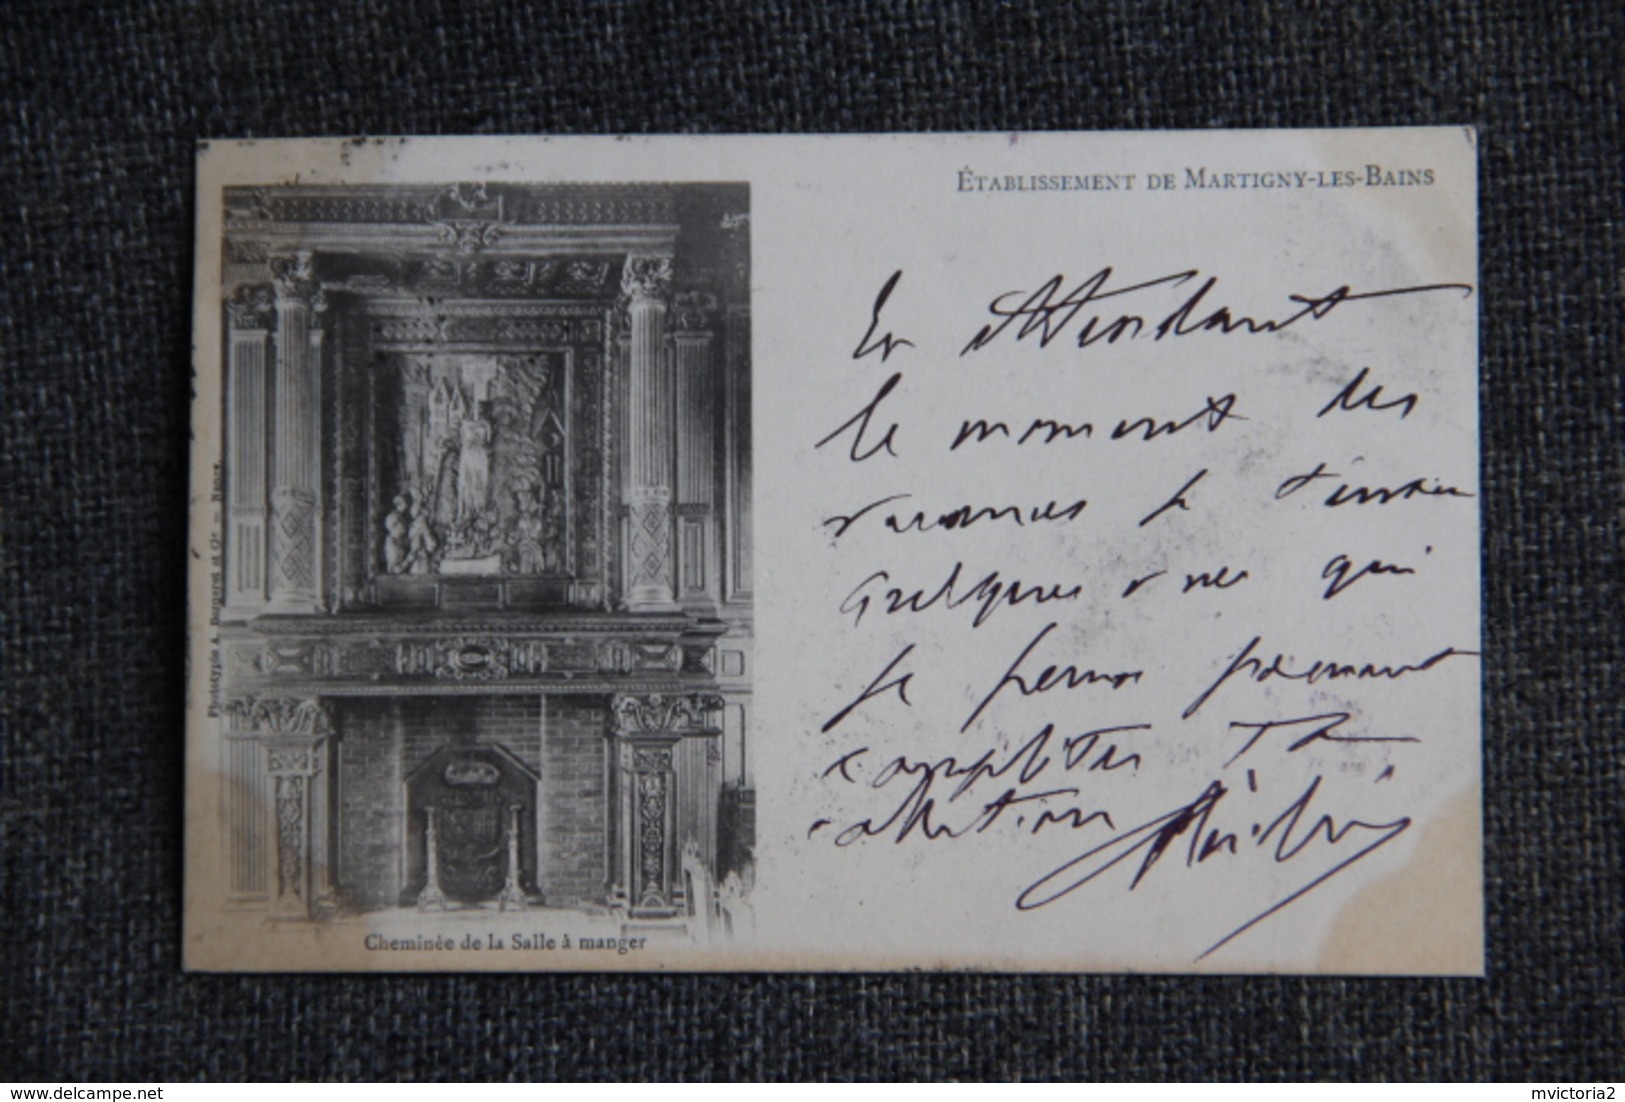 ÉTABLISSEMENT DE MARTIGNY-LES-BAINS
En attendant
le moment des
vacances je t'envoie
quelques vues qui
je pense pourront
compléter ta
collection
Phototypie A. Bergeret et Cie. — Nancy.
Cheminée de la Salle à manger
delcampe.net
mvictoria2